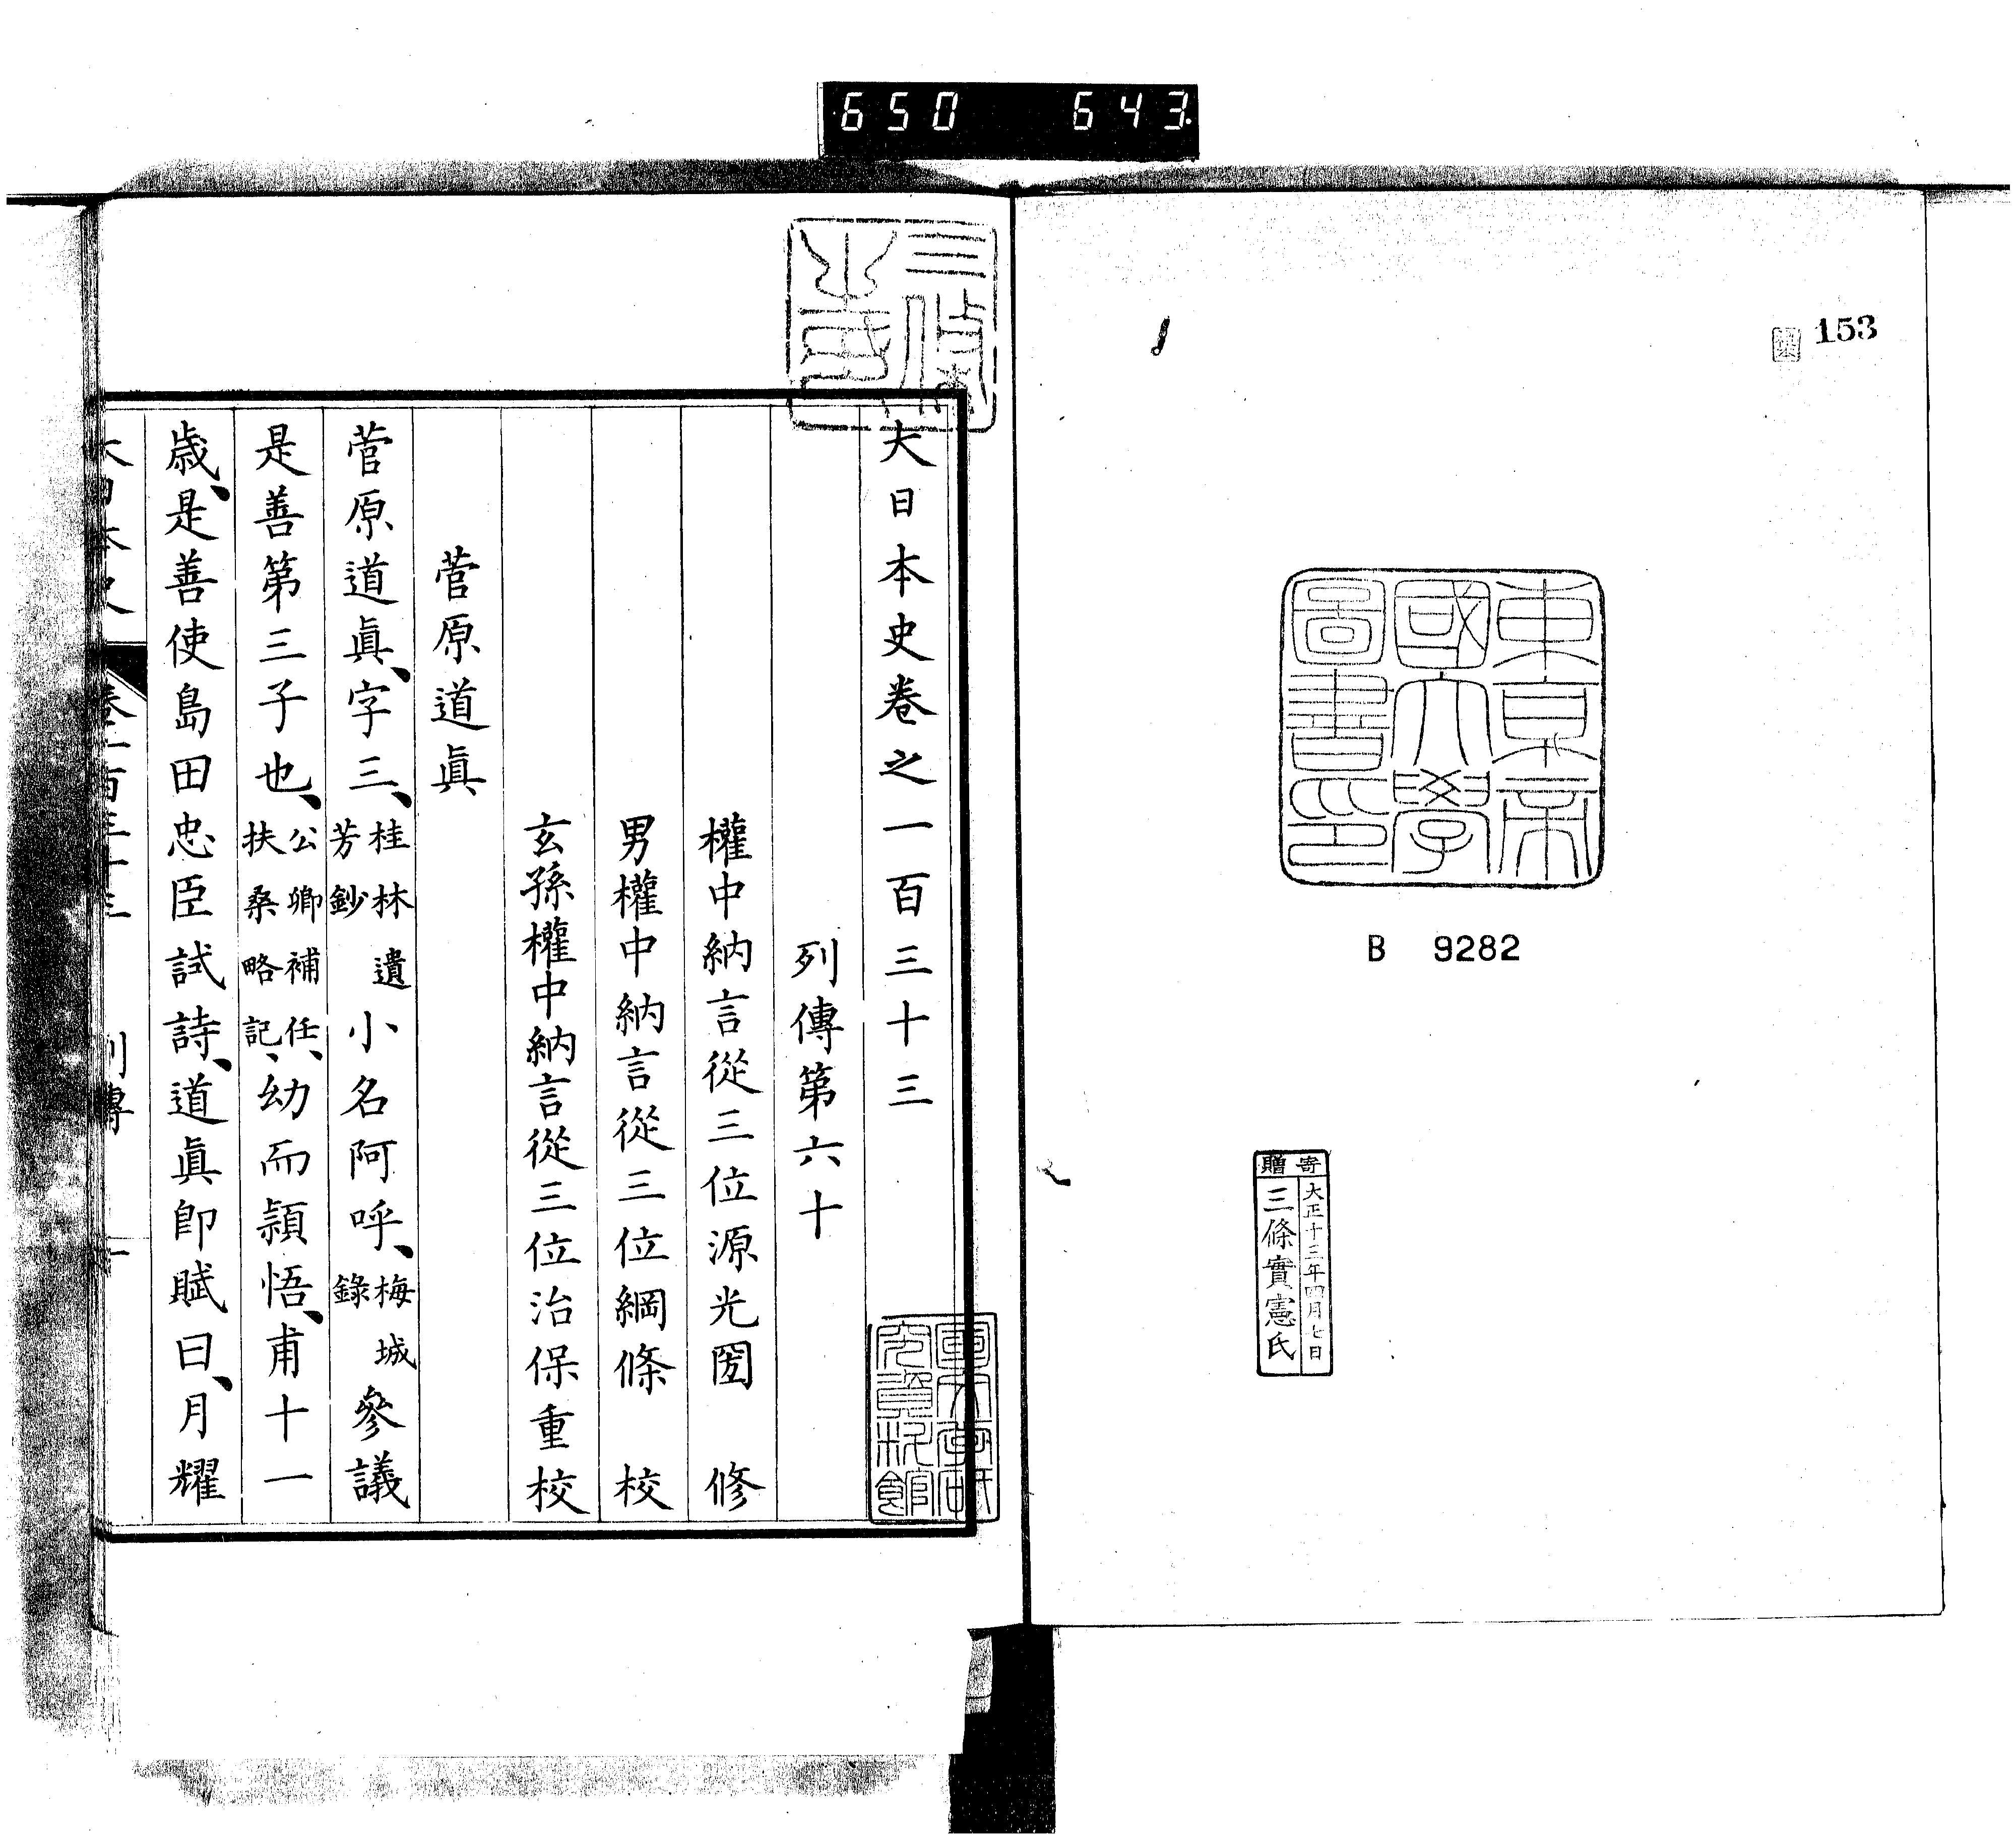 650 643
153
東京帝
國大學
圖書印
B 9282
寄贈
大正十三年四月七日
三條實憲氏
大日本史卷之一百三十三
列傳第六十
權中納言從三位源光圀 修
男權中納言從三位綱條 校
玄孫權中納言從三位治保重校
菅原道眞
菅原道眞、字三、桂林遺芳鈔小名阿呼、梅城錄參議
是善第三子也、公卿補任、扶桑略記、幼而穎悟、甫十一
歳、是善使島田忠臣試詩、道眞卽賦曰、月耀